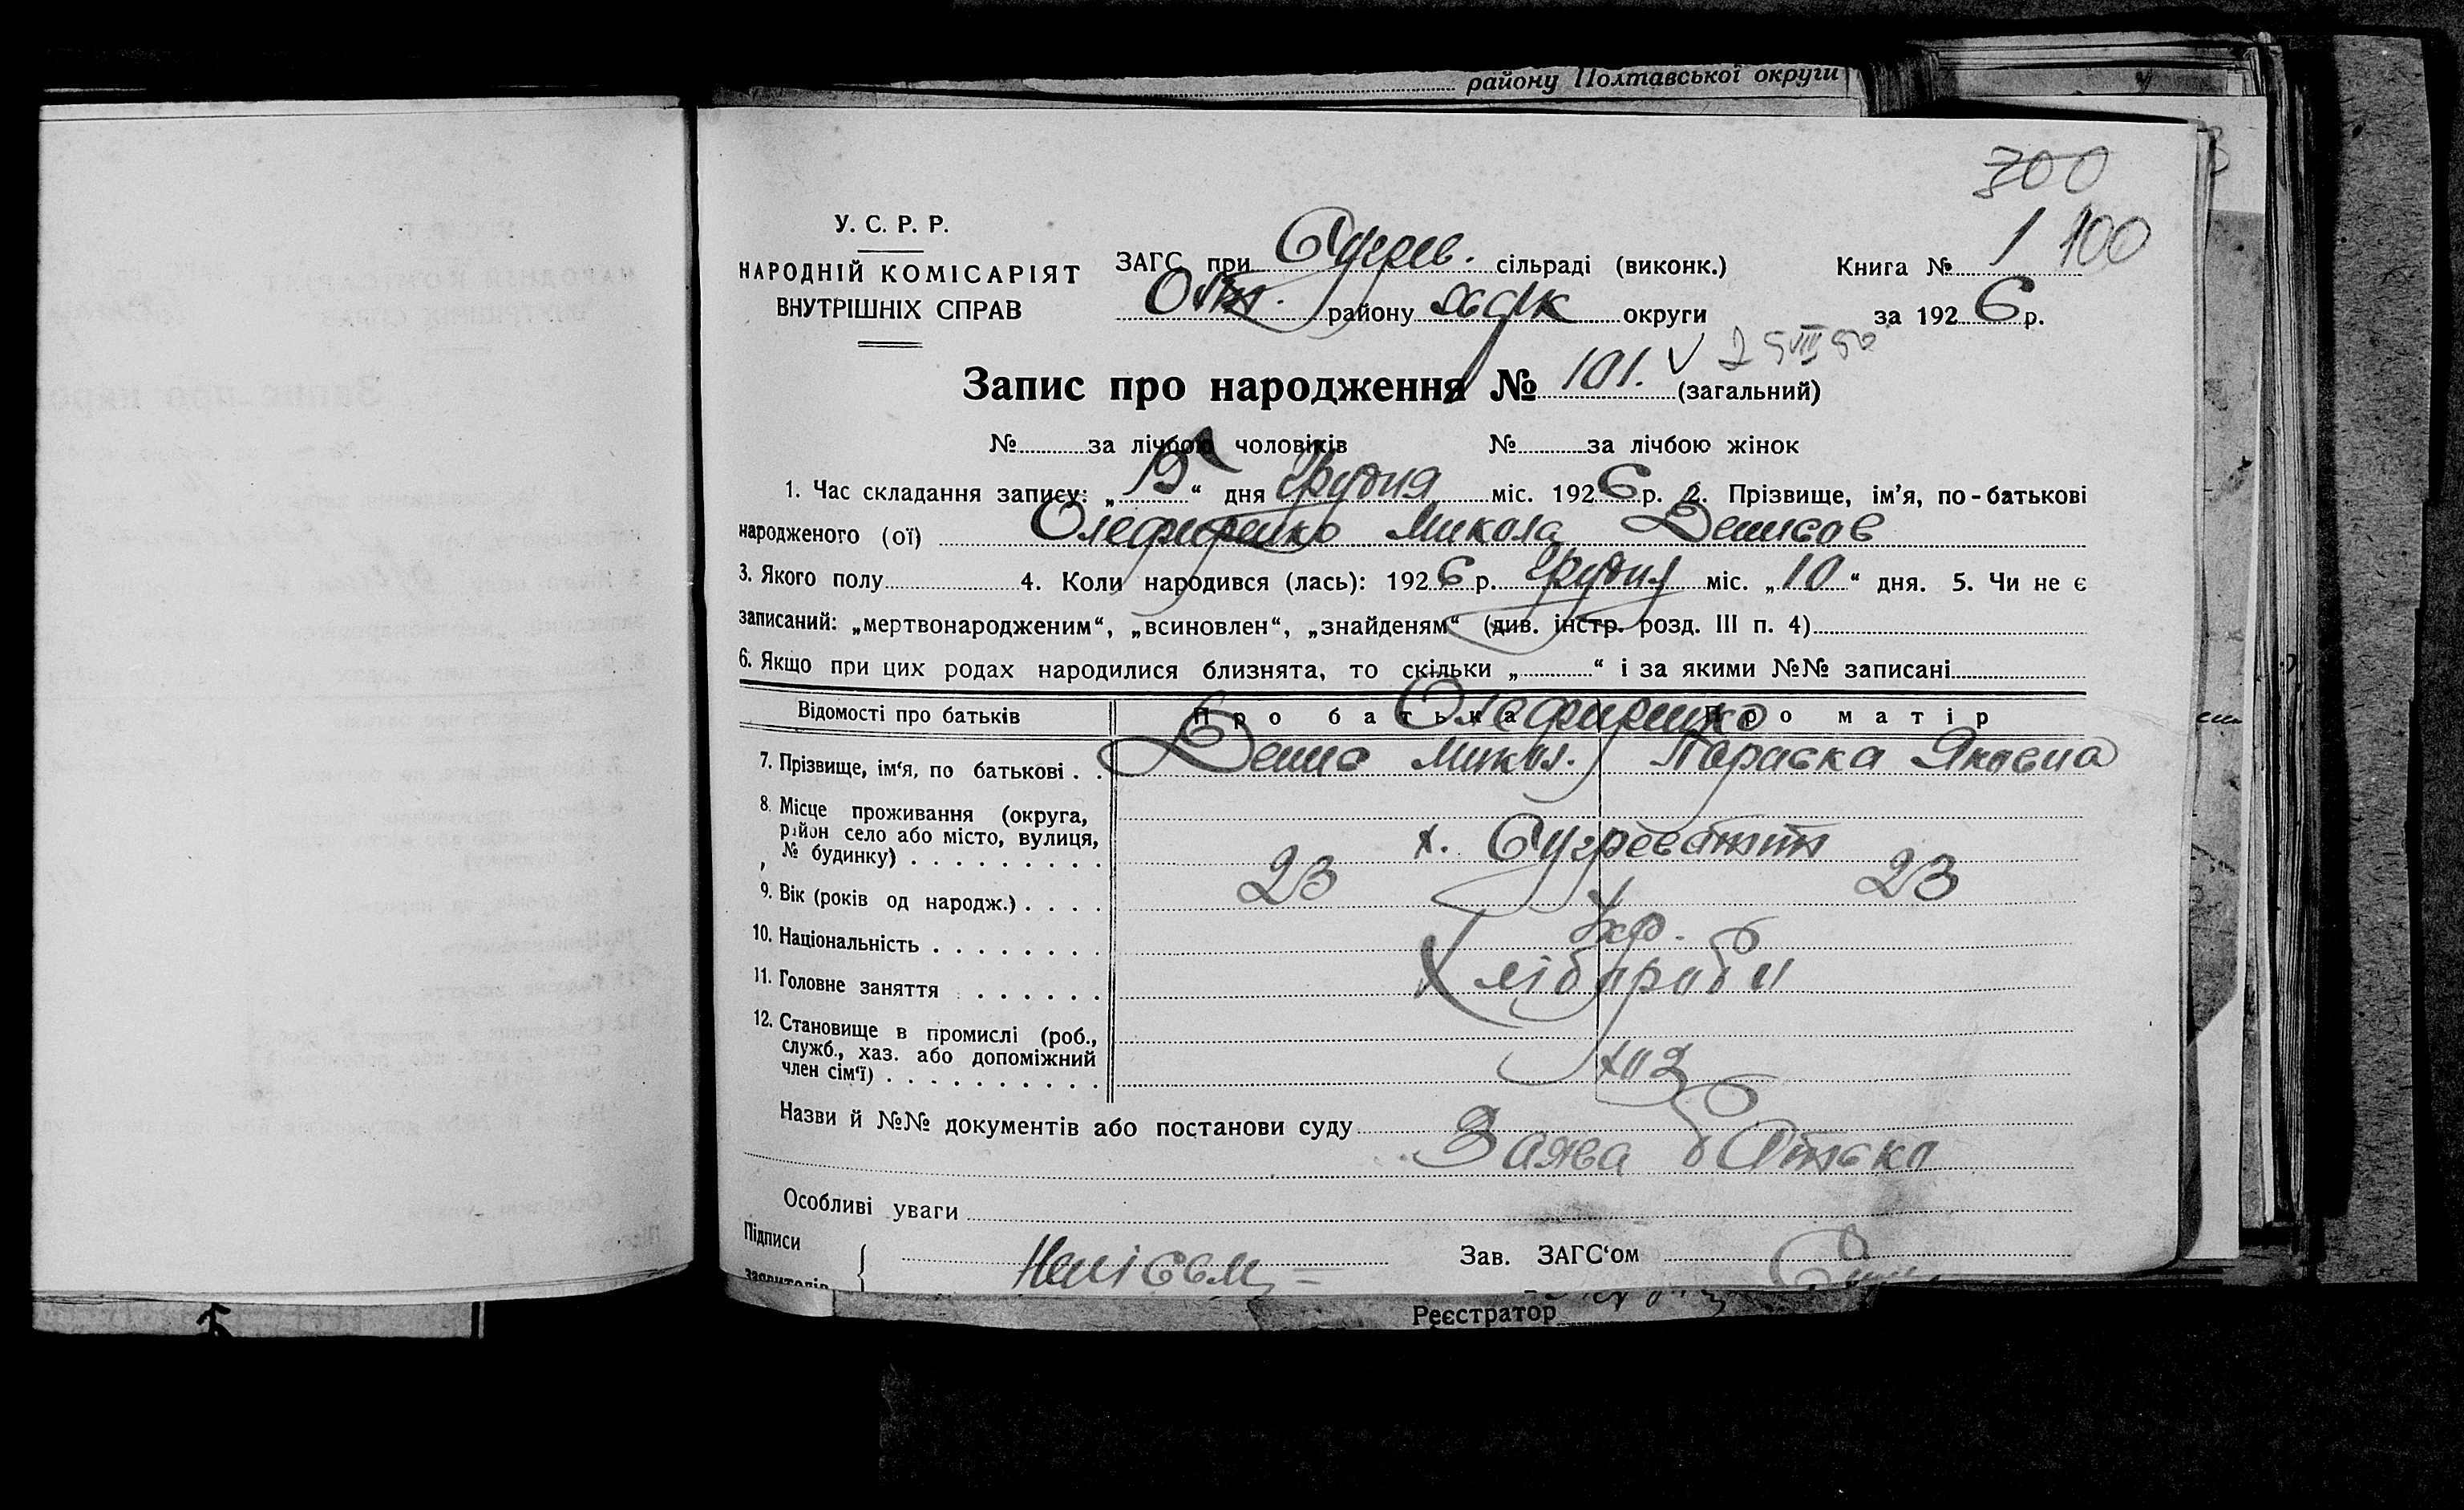 району Полтавської округи
700
1 100
У. С. Р. Р.
НАРОДНІЙ КОМІСАРІЯТ
ВНУТРІШНІХ СПРАВ
ЗАГС при Сугрев. сільраді (виконк.)
району округи
Книга №
за 1926 р.
Запис про народження № 101. (загальний)
№ за лічбою чоловіків № за лічбою жінок
1. Час складання запису: „15“ дня Грудня міс. 1926 р. 2. Прізвище, ім’я, по-батькові
народженого (ої) Олефиренко Микола Денисов
3. Якого полу 4. Коли народився (лась): 1926 р. Грудня міс. „10“ дня. 5. Чи не є
записаний: „мертвонародженим“, „всиновлен“, „знайденям“ (див. інстр. розд. III п. 4)
6. Якщо при цих родах народилися близнята, то скільки „ “ і за якими №№ записані
Відомості про батьків Про батька Про матір
Олефиренко
7. Прізвище, ім‘я, по батькові . . Денис Микол. Параска Яковна
8. Місце проживання (округа,
район село або місто, вулиця,
№ будинку) . . . . . . . . . х.
9. Вік (років од народж.) . . . . 23 23
10. Національність . . . . . . . . Укр.
11. Головне заняття . . . . . . Хлібороби
12. Становище в промислі (роб.,
служб., хаз. або допоміжний
член сім‘ї) . . . . . . . . . . хаз
Назви й №№ документів або постанови суду
Заява батька
Особливі уваги
Підписи
заявителів
Зав. ЗАГС‘ом
Реєстратор